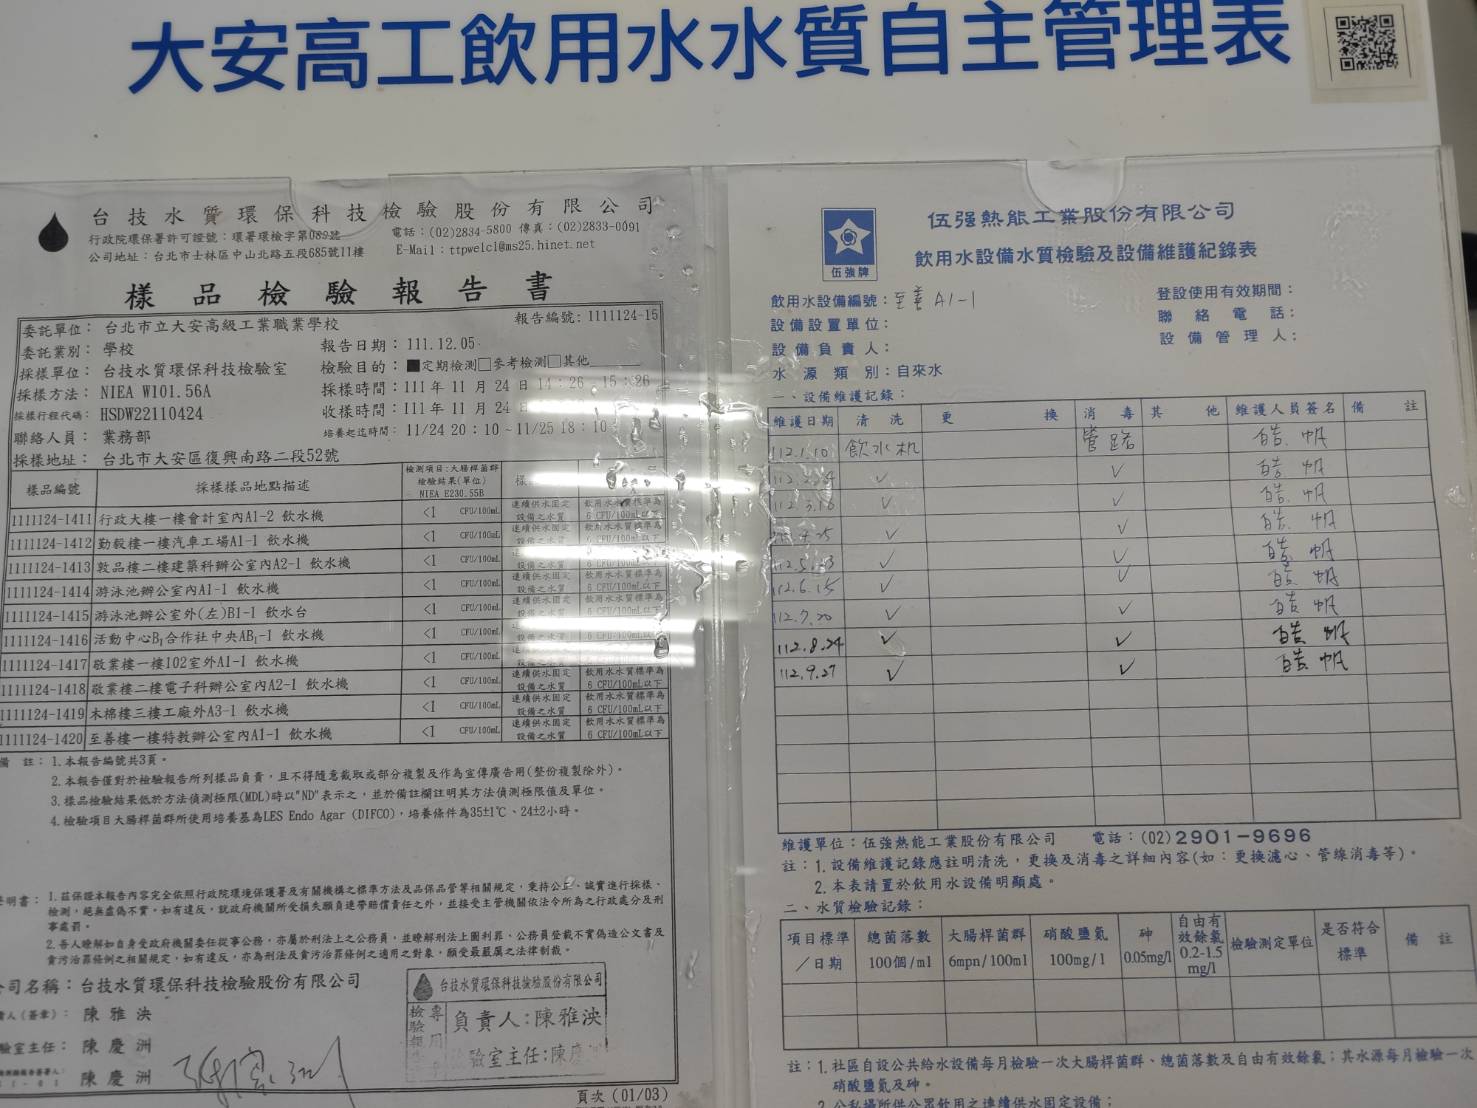 大安高工飲用水水質自主管理表
台技水質環保科技檢驗股份有限公司
行政院環保署許可證號：環署環檢字第089號
電話：(02)2834-5800 傳真：(02)2833-0091
公司地址：台北市士林區中山北路五段685號11樓
E-Mail：ttpwelcl@ms25.hinet.net
樣品檢驗報告書
委託單位：台北市立大安高級工業職業學校
報告編號：1111124-15
委託業別：學校
報告日期：111.12.05
採樣單位：台技水質環保科技檢驗室
檢驗目的：■定期檢測□參考檢測□其他
採樣方法：NIEA W101.56A
採樣時間：111年11月24日14：26-15：26
採樣行程代碼：HSDW22110424
收樣時間：111年11月24日
聯絡人員：業務部
培養起迄時間：11/24 20：10～11/25 18：10
採樣地址：台北市大安區復興南路二段52號
樣品編號 採樣樣品地點描述 檢測項目:大腸桿菌群 檢驗結果(單位) NIEA E230.55B
1111124-1411 行政大樓一樓會計室內A1-2 飲水機 <1 CFU/100mL 連續供水固定設備之水質 飲用水水質標準為6 CFU/100mL以下
1111124-1412 勤毅樓一樓汽車工場A1-1 飲水機 <1 CFU/100mL 連續供水固定設備之水質 飲用水水質標準為6 CFU/100mL以下
1111124-1413 敦品樓二樓建築科辦公室內A2-1 飲水機 <1 CFU/100mL
1111124-1414 游泳池辦公室內A1-1 飲水機 <1 CFU/100mL 連續供水固定設備之水質 飲用水水質標準為6 CFU/100mL以下
1111124-1415 游泳池辦公室外(左)B1-1 飲水台 <1 CFU/100mL 連續供水固定設備之水質 飲用水水質標準為6 CFU/100mL以下
1111124-1416 活動中心B1合作社中央AB1-1 飲水機 <1 CFU/100mL
1111124-1417 敬業樓一樓102室外A1-1 飲水機 <1 CFU/100mL
1111124-1418 敬業樓二樓電子科辦公室內A2-1 飲水機 <1 CFU/100mL 連續供水固定設備之水質 飲用水水質標準為6 CFU/100mL以下
1111124-1419 木棉樓三樓工廠外A3-1 飲水機 <1 CFU/100mL 連續供水固定設備之水質 飲用水水質標準為6 CFU/100mL以下
1111124-1420 至善樓一樓特教辦公室內A1-1 飲水機 <1 CFU/100mL 連續供水固定設備之水質 飲用水水質標準為6 CFU/100mL以下
備 註：1.本報告編號共3頁。
2.本報告僅對於檢驗報告所列樣品負責，且不得隨意截取或部分複製及作為宣傳廣告用(整份複製除外)。
3.樣品檢驗結果低於方法偵測極限(MDL)時以"ND"表示之，並於備註欄註明其方法偵測極限值及單位。
4.檢驗項目大腸桿菌群所使用培養基為LES Endo Agar (DIFCO)，培養條件為35±1℃、24±2小時。
明書：1.茲保證本報告內容完全依照行政院環境保護署及有關機構之標準方法及品保品管等相關規定，秉持公正、誠實進行採樣、
檢測，絕無虛偽不實，如有違反，就政府機關所受損失願負連帶賠償責任之外，並接受主管機關依法令所為之行政處分及刑
事處罰。
2.吾人瞭解如自身受政府機關委任從事公務，亦屬於刑法上之公務員，並瞭解刑法上圖利罪、公務員登載不實偽造公文書及
貪污治罪條例之相關規定，如有違反，亦為刑法及貪污治罪條例之適用之對象，願受最嚴厲之法律制裁。
司名稱：台技水質環保科技檢驗股份有限公司
責人(簽章)：陳雅泱
驗室主任：陳慶洲
陳慶洲
台技水質環保科技檢驗股份有限公司
檢驗報告專用
負責人:陳雅泱
驗室主任:陳慶洲
頁次 (01/03)
伍強牌
伍強熱能工業股份有限公司
飲用水設備水質檢驗及設備維護紀錄表
飲用水設備編號：至善 A1-1
登設使用有效期間：
設備設置單位：
聯絡電話：
設備負責人：
設備管理人：
水源類別：自來水
一、設備維護記錄：
維護日期 清洗 更換 消毒 其他 維護人員簽名 備註
112.1.10 飲水机 管路 皓帆
112.2.24 ✓ ✓ 皓帆
112.3.16 ✓ 皓帆
4.25 ✓ ✓ 皓帆
✓ ✓ 皓帆
112.6.15 ✓ ✓ 皓帆
112.7.20 ✓ ✓ 皓帆
112.8.24 ✓ ✓ 皓帆
112.9.27 ✓ ✓ 皓帆
維護單位：伍強熱能工業股份有限公司 電話：(02)2901-9696
註：1.設備維護記錄應註明清洗，更換及消毒之詳細內容(如：更換濾心、管線消毒等)。
2.本表請置於飲用水設備明顯處。
二、水質檢驗記錄：
項目標準／日期 總菌落數100個/ml 大腸桿菌群6mpn/100ml 硝酸鹽氮100mg/l 砷0.05mg/l 自由有效餘氯0.2-1.5mg/l 檢驗測定單位 是否符合標準 備註
註：1.社區自設公共給水設備每月檢驗一次大腸桿菌群、總菌落數及自由有效餘氯；其水源每月檢驗一次
硝酸鹽氮及砷。
2.公私場所供公眾飲用之連續供水固定設備：